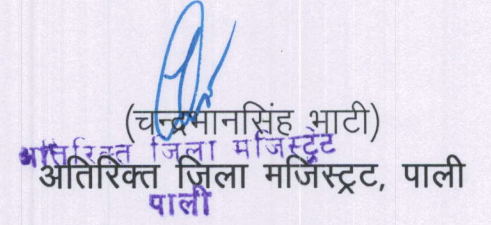 (चन्द्रभानसिंह भाटी)
अतिरिक्त जिला मजिस्ट्रेट
अतिरिक्त जिला मजिस्ट्रट, पाली
पाली